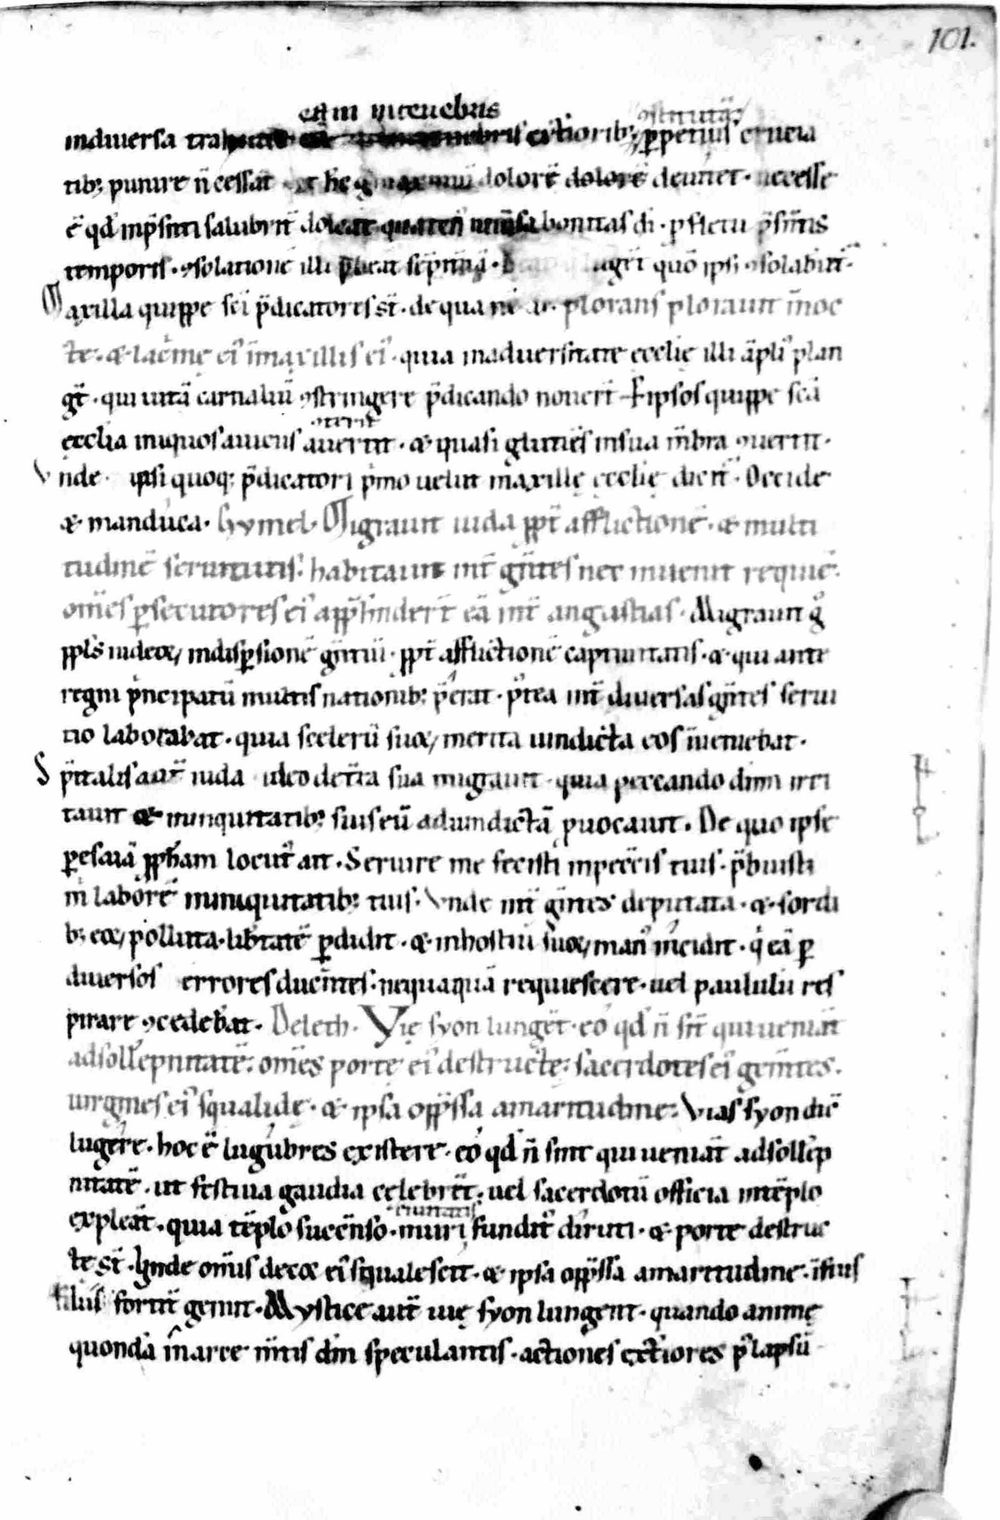 101.
eam in tenebris
indiuersa exterioribꝫ ꝑpetius crucia
tibꝫ punire n̄ cessat dolorē dolorē deuitet · necesse
ē qd̄ inp̄senti salubrit̄ doleat quaten̄ bonitas dī · ꝓ fletu p̄sentis
temporis · ꝯsolationē illi p̄beat sēpit̄nā · lugēt quō ipsi ꝯsolabunt̄ ·
Maxilla quippe scī p̄dicatores st̄ · de qua plorans plorauit in noc
te · & lacrime ei᾽ in maxillis ei᾽ · quia inaduersitate ecclię illi āpli᾽ plan
gt̄ · qui uitā carnaliū ꝯstringere p̄dicando nouert̄ ipsos quippe scā
ecclia iniquos auertit · & quasi glutiens insua mēbra ꝯuertit ·
Vnde ipsi quoqꝫ p̄dicatori primo uelut maxillę ecclię dicit̄ · Occide
& manduca · Gymel · Migrauit iuda ꝓpt̄ afflictionē · & multi
tudinē seruitutis · habitauit int̄ gentes nec inuenit requiē ·
om̄es ꝑsecutores ei᾽ apprehendert̄ eā int̄ angustias · Migrauit g̊
ppl̄s iudeoꝝ indisꝑsionē gentiū · ꝓpt̄ afflictionē captiuitatis · & qui ante
regni principatū multis nationibꝫ p̄erat · postea int̄ diuersas gentes serui
tio laborabat · quia scelerū suoꝝ merita uindicta eos inueniebat ·
Sp̄italis aut̄ iuda ideo de t̄ra sua migrauit · quia peccando dn̄m irri
tauit & iniquitatibꝫ suis eū aduindictā ꝓuocauit · De quo ipse
ꝑ esaiā ꝓph̄am locut᾽ ait · Seruire me fecisti inpecc̄is tuis · p̄buisti
m̄ laborē ininiquitatibꝫ tuis · Vnde int̄ gentes deputata · & sordi
bꝫ eoꝝ polluta · libertatē ꝑdidit · & inhostiū suoꝝ man᾽ incidit · qi eā ꝑ
diuersos errores ducentes · nequaquā requiescere · uel paululū res
pirare ꝯcedebat · Deleth · Vie syon lugēt · eo qd̄ n̄ sint qui ueniāt
adsollēpnitatē : om̄es porte ei᾽ destructe : sacerdotes ei᾽ gementes ·
uirgines ei᾽ squalide · & ipsa opp̄ssa amaritudine · Vias syon dic̄
lugere · hoc ē lugubres existere · eo qd̄ n̄ sint qui ueniāt adsollēp
nitatē · ut festiua gaudia celebrēt : uel sacerdotū officia intēplo
expleāt · quia tēplo succenso · muri ciuitatis fundit᾽ diruti · & porte destruc
te st̄ · Vnde om̄is decor ei᾽ squalescit · & ipsa opp̄ssa amaritudine ·
fortit̄ gemit · Mystice aut̄ uię syon lugent · quando animę
quondā in arce mentis dn̄m speculantis · actiones exteriores ꝑ lapsū